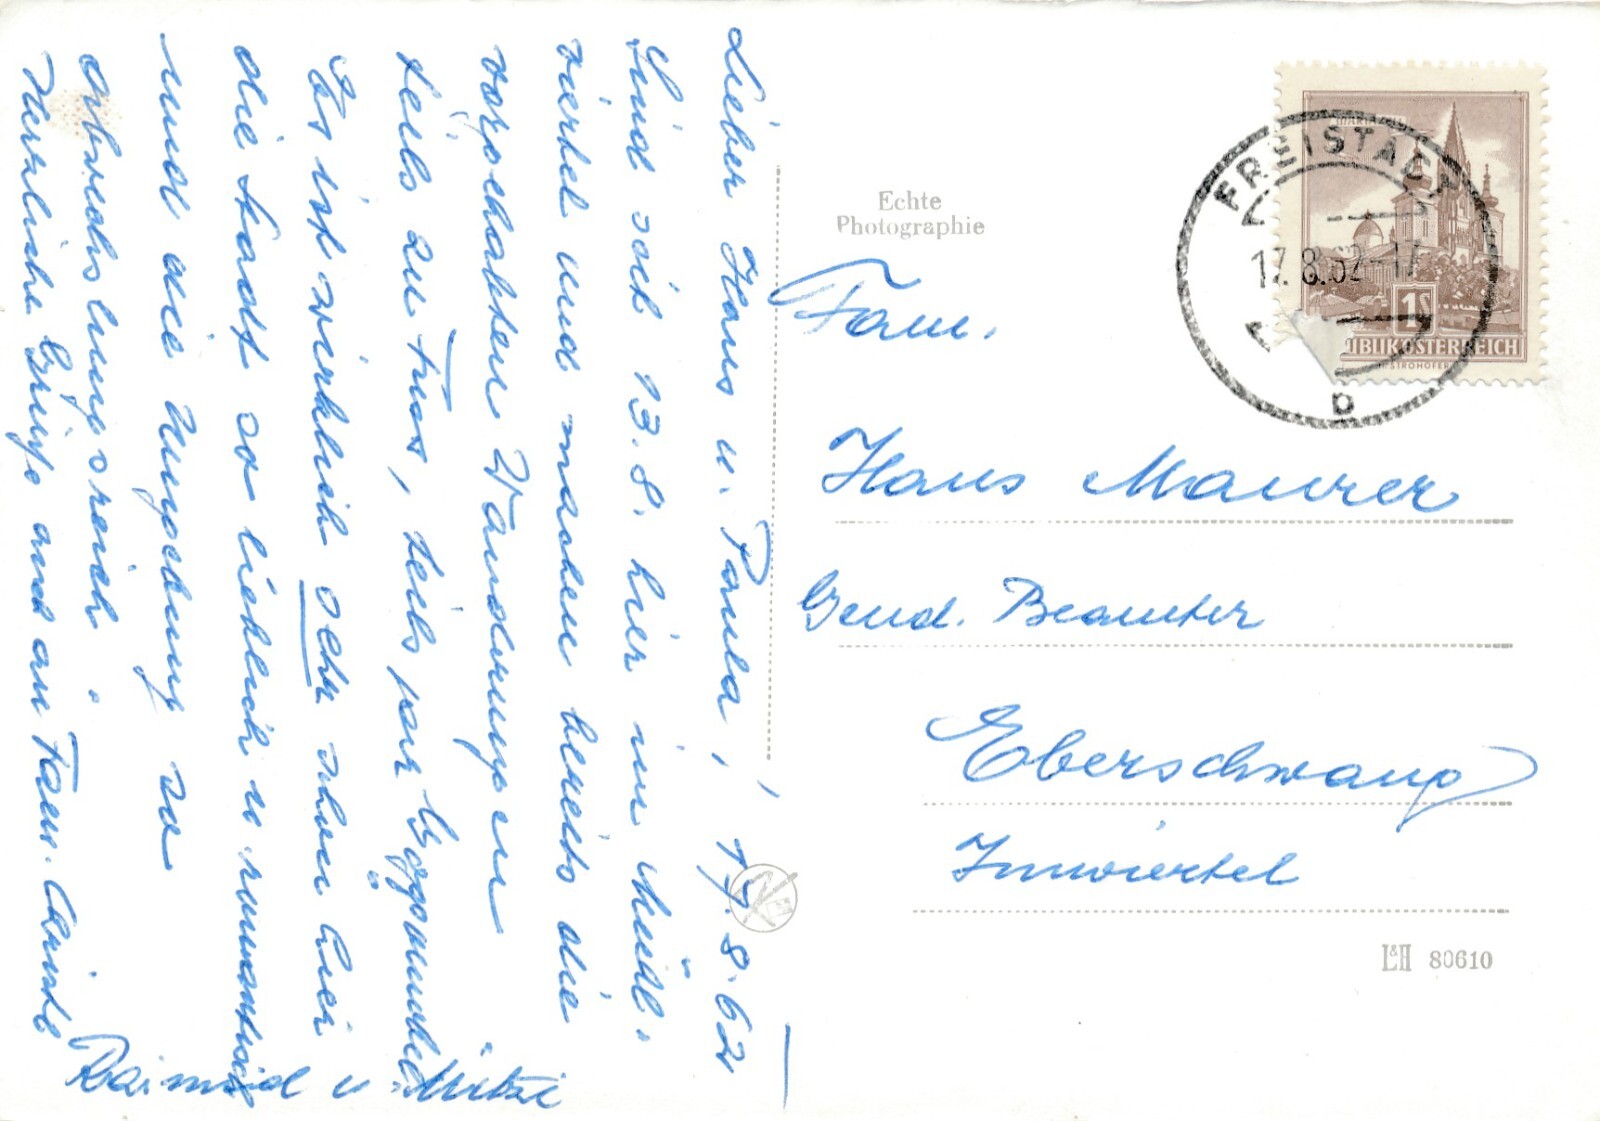 Lieber Hans u. Paula, 17.8.62
Sind seit 13.8. hier im Mühl-
viertel und machen bereits die
vorgehabten Wanderungen
teils zu Fuss, teils per
Es ist wirklich sehr schön hier
die Stadt so lieblich u. romantisch
und die Umgebung so
abwechslungsreich.
Herzliche Grüße auch an Fam.
Raimund u. Mitzi
Echte
Photographie
Fam.
Hans Maurer
Gend. Beamter
Eberschwang
Innviertel
L&H 80610
FREISTADT
17.8.62-17
b
MARIAZELL
1S
REPUBLIK ÖSTERREICH
STROHOFER